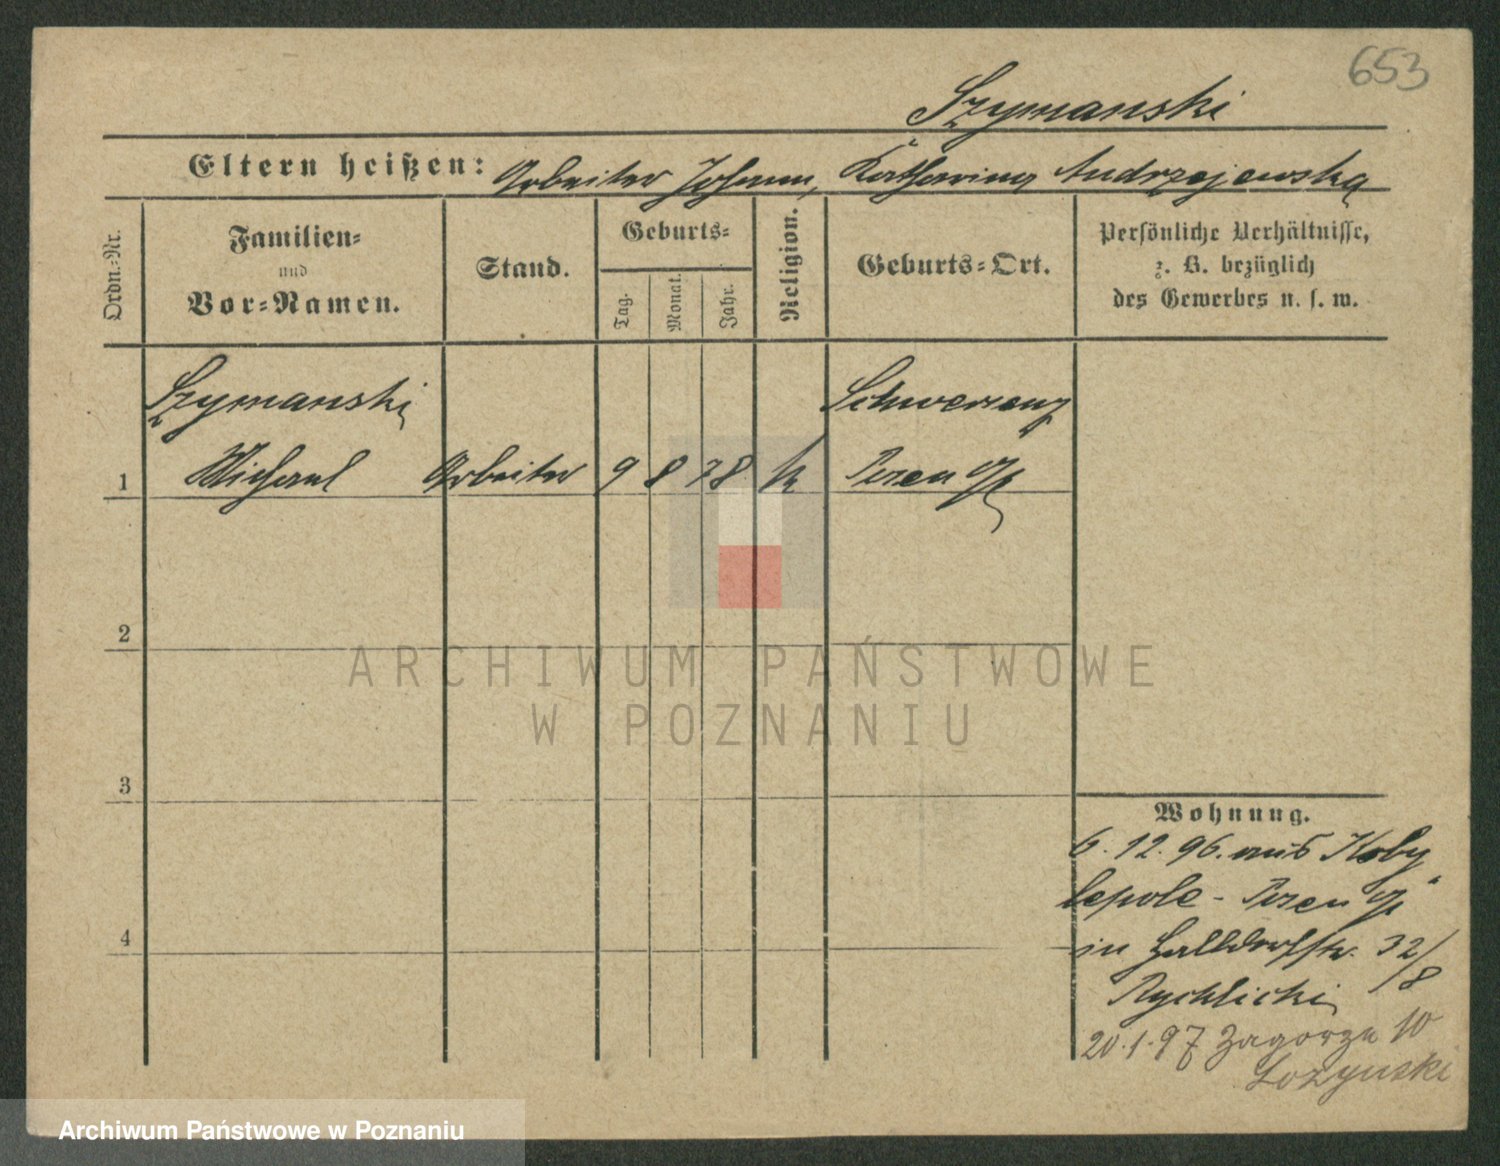 653
Szymanski
Eltern heißen: Arbeiter Johann, Katharina Andrzejewska
Ordn.=Nr.
Familien=
und
Vor=Namen.
Stand.
Geburts=
Tag.
Monat.
Jahr.
Religion.
Geburts=Ort.
Persönliche Verhältnisse,
z. B. bezüglich
des Gewerbes u. s. w.
Szymanski
Schwersenz
1 Michael Arbeiter 9 8 78 k Posen O/
2
ARCHIWUM PAŃSTWOWE
W POZNANIU
3
Wohnung.
6. 12. 96. aus Koby
lepole - Posen O/
in Halldorfstr. 32/8
4
Rychlicki
20.1.97 Zagorze 10
Lozynski
Archiwum Państwowe w Poznaniu